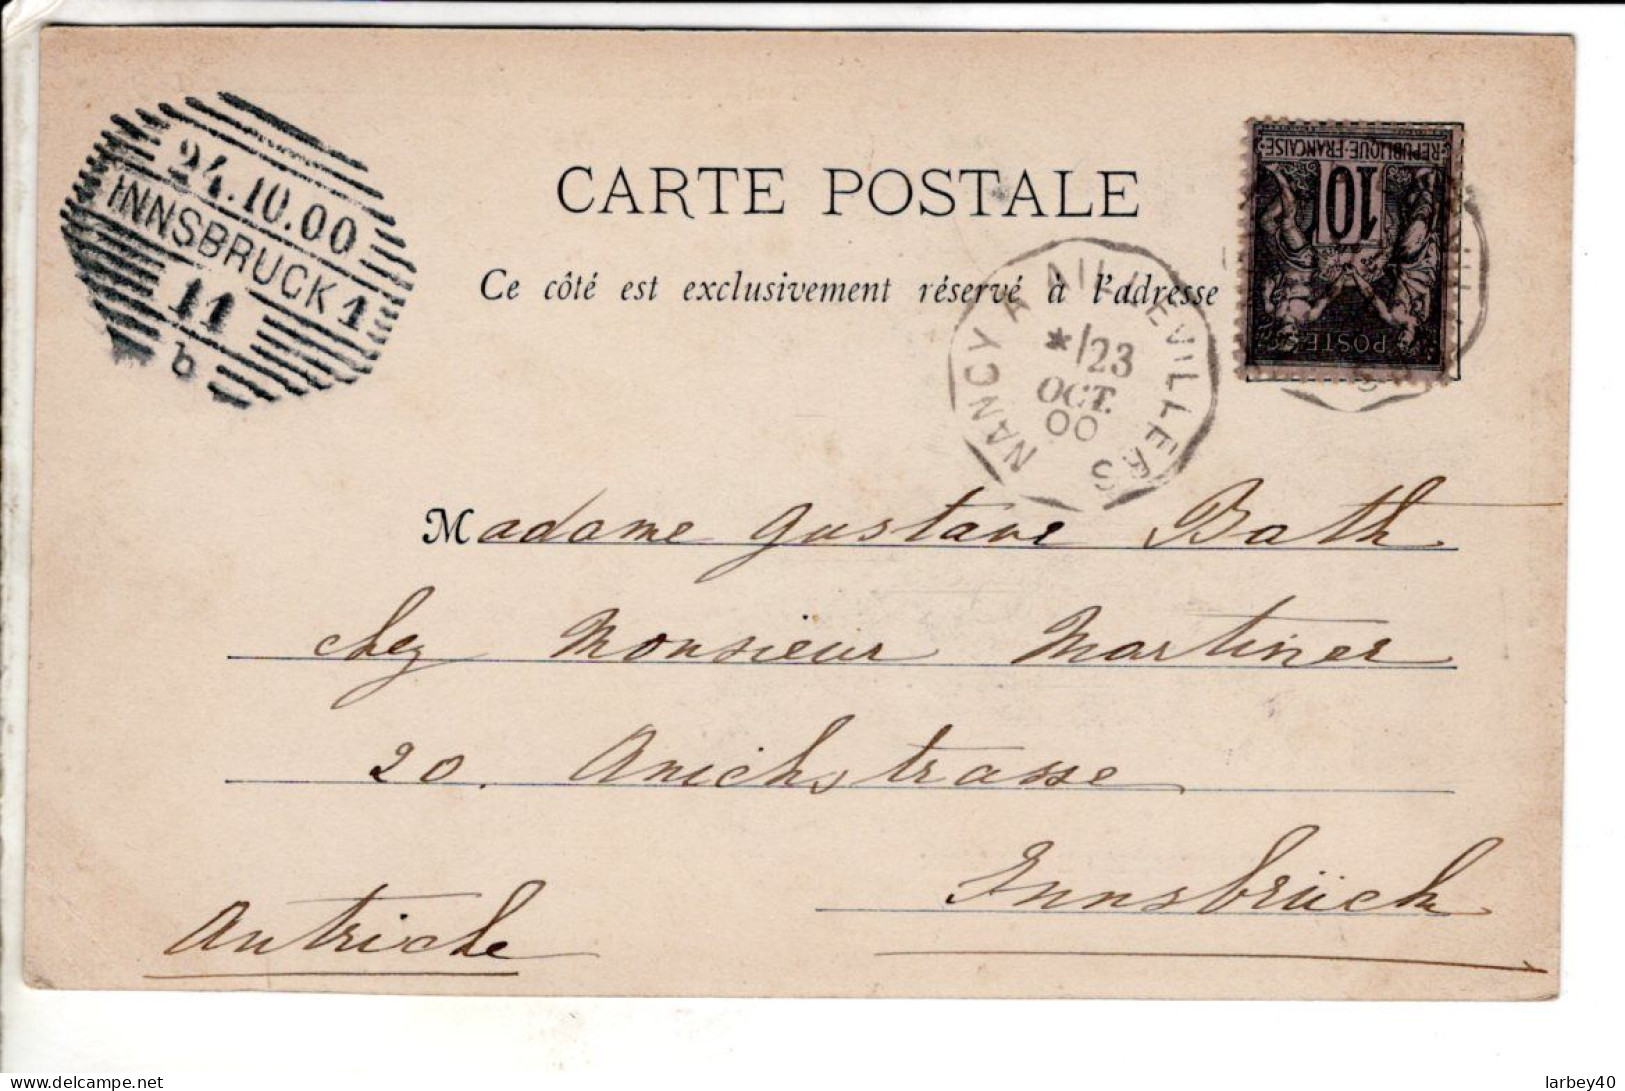 24.10.00
INNSBRUCK 1
11
b
CARTE POSTALE
Ce côté est exclusivement réservé à l'adresse
REPUBLIQUE FRANÇAISE
10
POSTES
NANCY A AILLEVILLERS
*/23
OCT.
00
Madame Gustave Bath
chez Monsieur Martiner
20. Anichstrasse
Innsbrück
Autriche
delcampe.net
larbey40